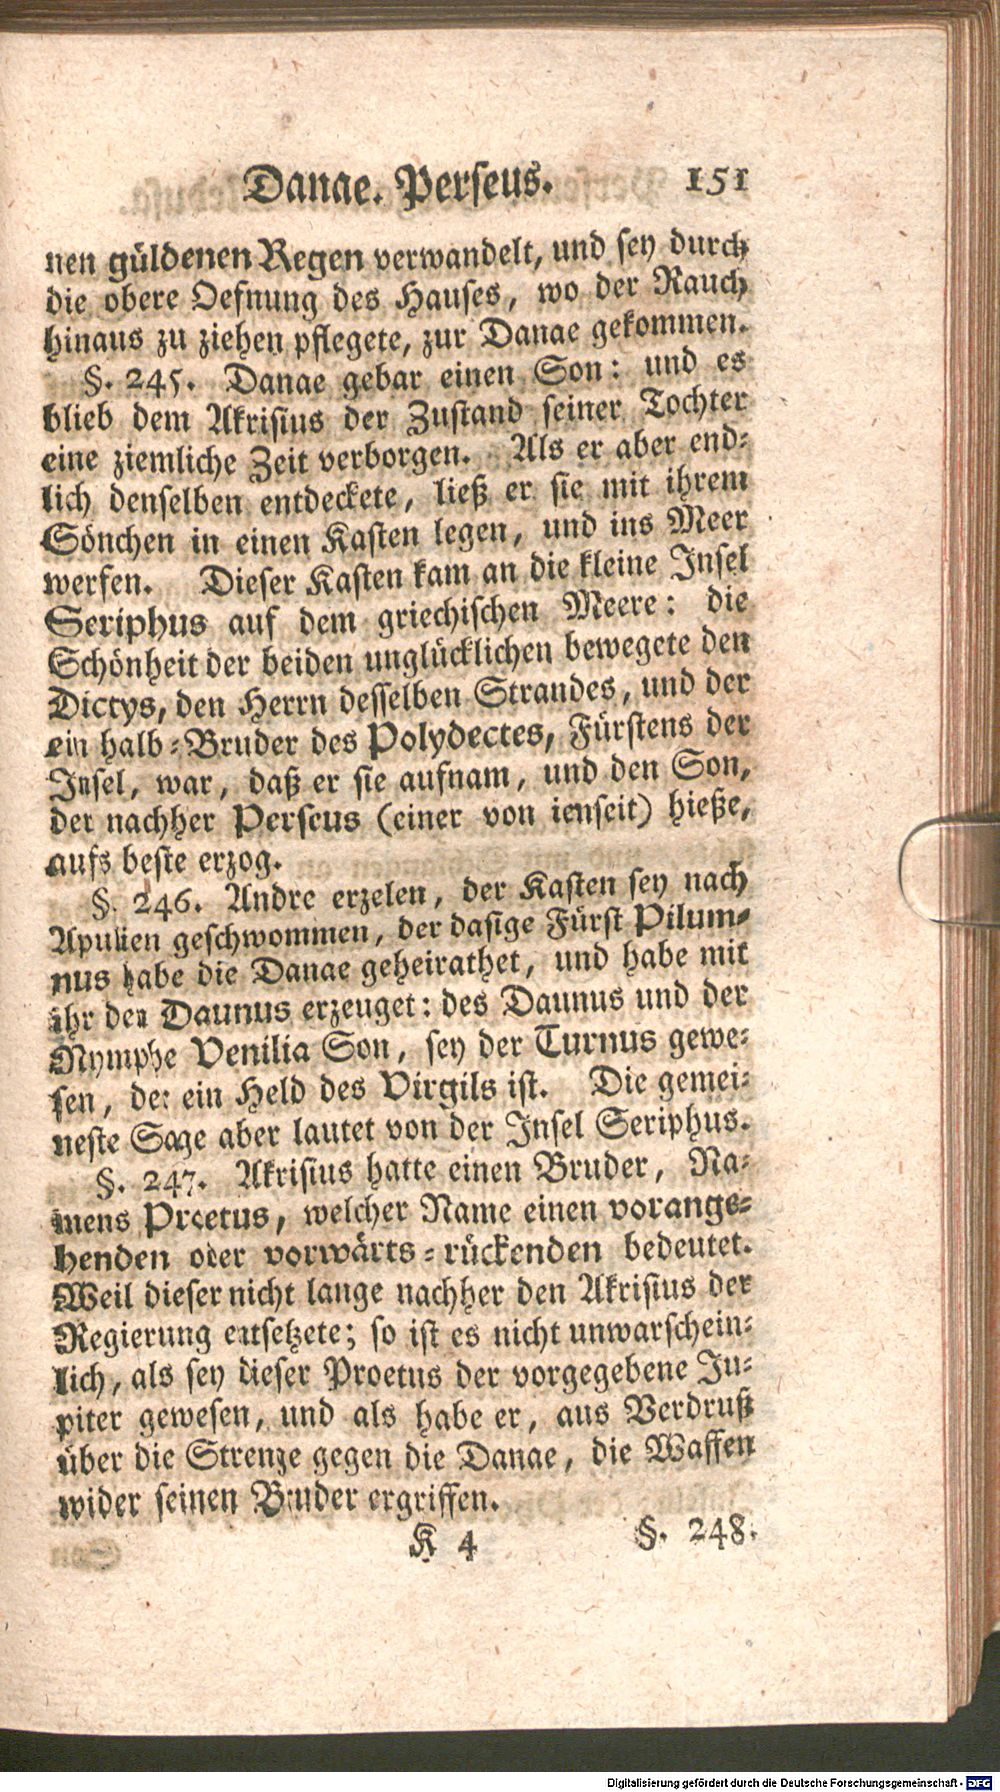 Danae. Perseus. 151
nen güldenen Regen verwandelt, und sey durch
die obere Oefnung des Hauses, wo der Rauch
hinaus zu ziehen pflegete, zur Danae gekommen.
§. 245. Danae gebar einen Son: und es
blieb dem Akrisius der Zustand seiner Tochter
eine ziemliche Zeit verborgen. Als er aber end-
lich denselben entdeckete, ließ er sie mit ihrem
Sönchen in einen Kasten legen, und ins Meer
werfen. Dieser Kasten kam an die kleine Insel
Seriphus auf dem griechischen Meere: die
Schönheit der beiden unglücklichen bewegete den
Dictys, den Herrn desselben Strandes, und der
ein halb-Bruder des Polydectes, Fürstens der
Insel, war, daß er sie aufnam, und den Son,
der nachher Perseus (einer von ienseit) hieße,
aufs beste erzog.
§. 246. Andre erzelen, der Kasten sey nach
Apulien geschwommen, der dasige Fürst Pilum-
nus habe die Danae geheirathet, und habe mit
ihr den Daunus erzeuget: des Daunus und der
Nymphe Venilia Son, sey der Turnus gewe-
sen, der ein Held des Virgils ist. Die gemei-
neste Sage aber lautet von der Insel Seriphus.
§. 247. Akrisius hatte einen Bruder, Na-
mens Proetus, welcher Name einen vorange-
henden oder vorwärts-rückenden bedeutet.
Weil dieser nicht lange nachher den Akrisius der
Regierung entsetzete; so ist es nicht unwarschein-
lich, als sey dieser Proetus der vorgegebene Ju-
piter gewesen, und als habe er, aus Verdruß
über die Strenge gegen die Danae, die Waffen
wider seinen Bruder ergriffen.
K 4 §. 248.
Digitalisierung gefördert durch die Deutsche Forschungsgemeinschaft - DFG